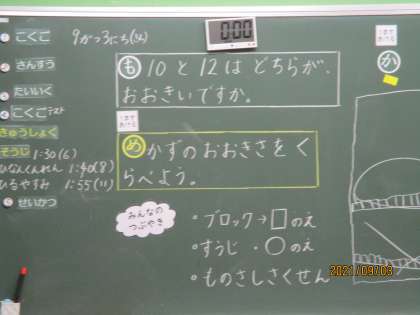 こくご
さんすう
たいいく
こくごテスト
きゅうしょく
そうじ 1:30(6)
ひなんくんれん 1:40(8)
ひるやすみ 1:55(11)
せいかつ
9がつ3にち(金)
0:00
も 10と12はどちらが、
おおきいですか。
め かずのおおきさをく
らべよう。
みんなの
つぶやき
・ブロック→□のえ
・すうじ・○のえ
・ものさしさくせん
か
2021/09/03